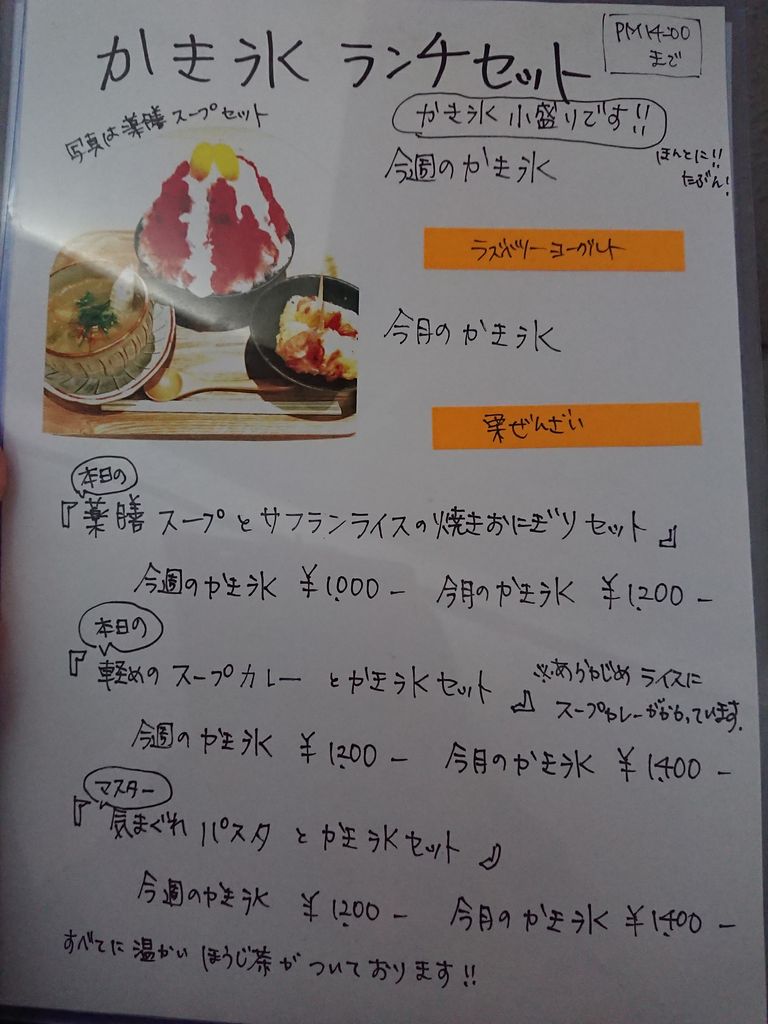 かき氷 ランチセット
PM14:00
まで
写真は薬膳スープセット
かき氷 小盛りです!!
ほんとに!!
たぶん!
今週のかき氷
ラズベリーヨーグルト
今月のかき氷
栗ぜんざい
本日の
『薬膳スープとサフランライスの焼きおにぎりセット』
今週のかき氷 ¥1,000- 今月のかき氷 ¥1,200-
本日の
『軽めのスープカレーとかき氷セット』
※あらかじめライスに
スープカレーがかかっています.
今週のかき氷 ¥1,200- 今月のかき氷 ¥1,400-
マスター
『気まぐれパスタとかき氷セット』
今週のかき氷 ¥1,200- 今月のかき氷 ¥1,400-
すべてに温かいほうじ茶がついております!!